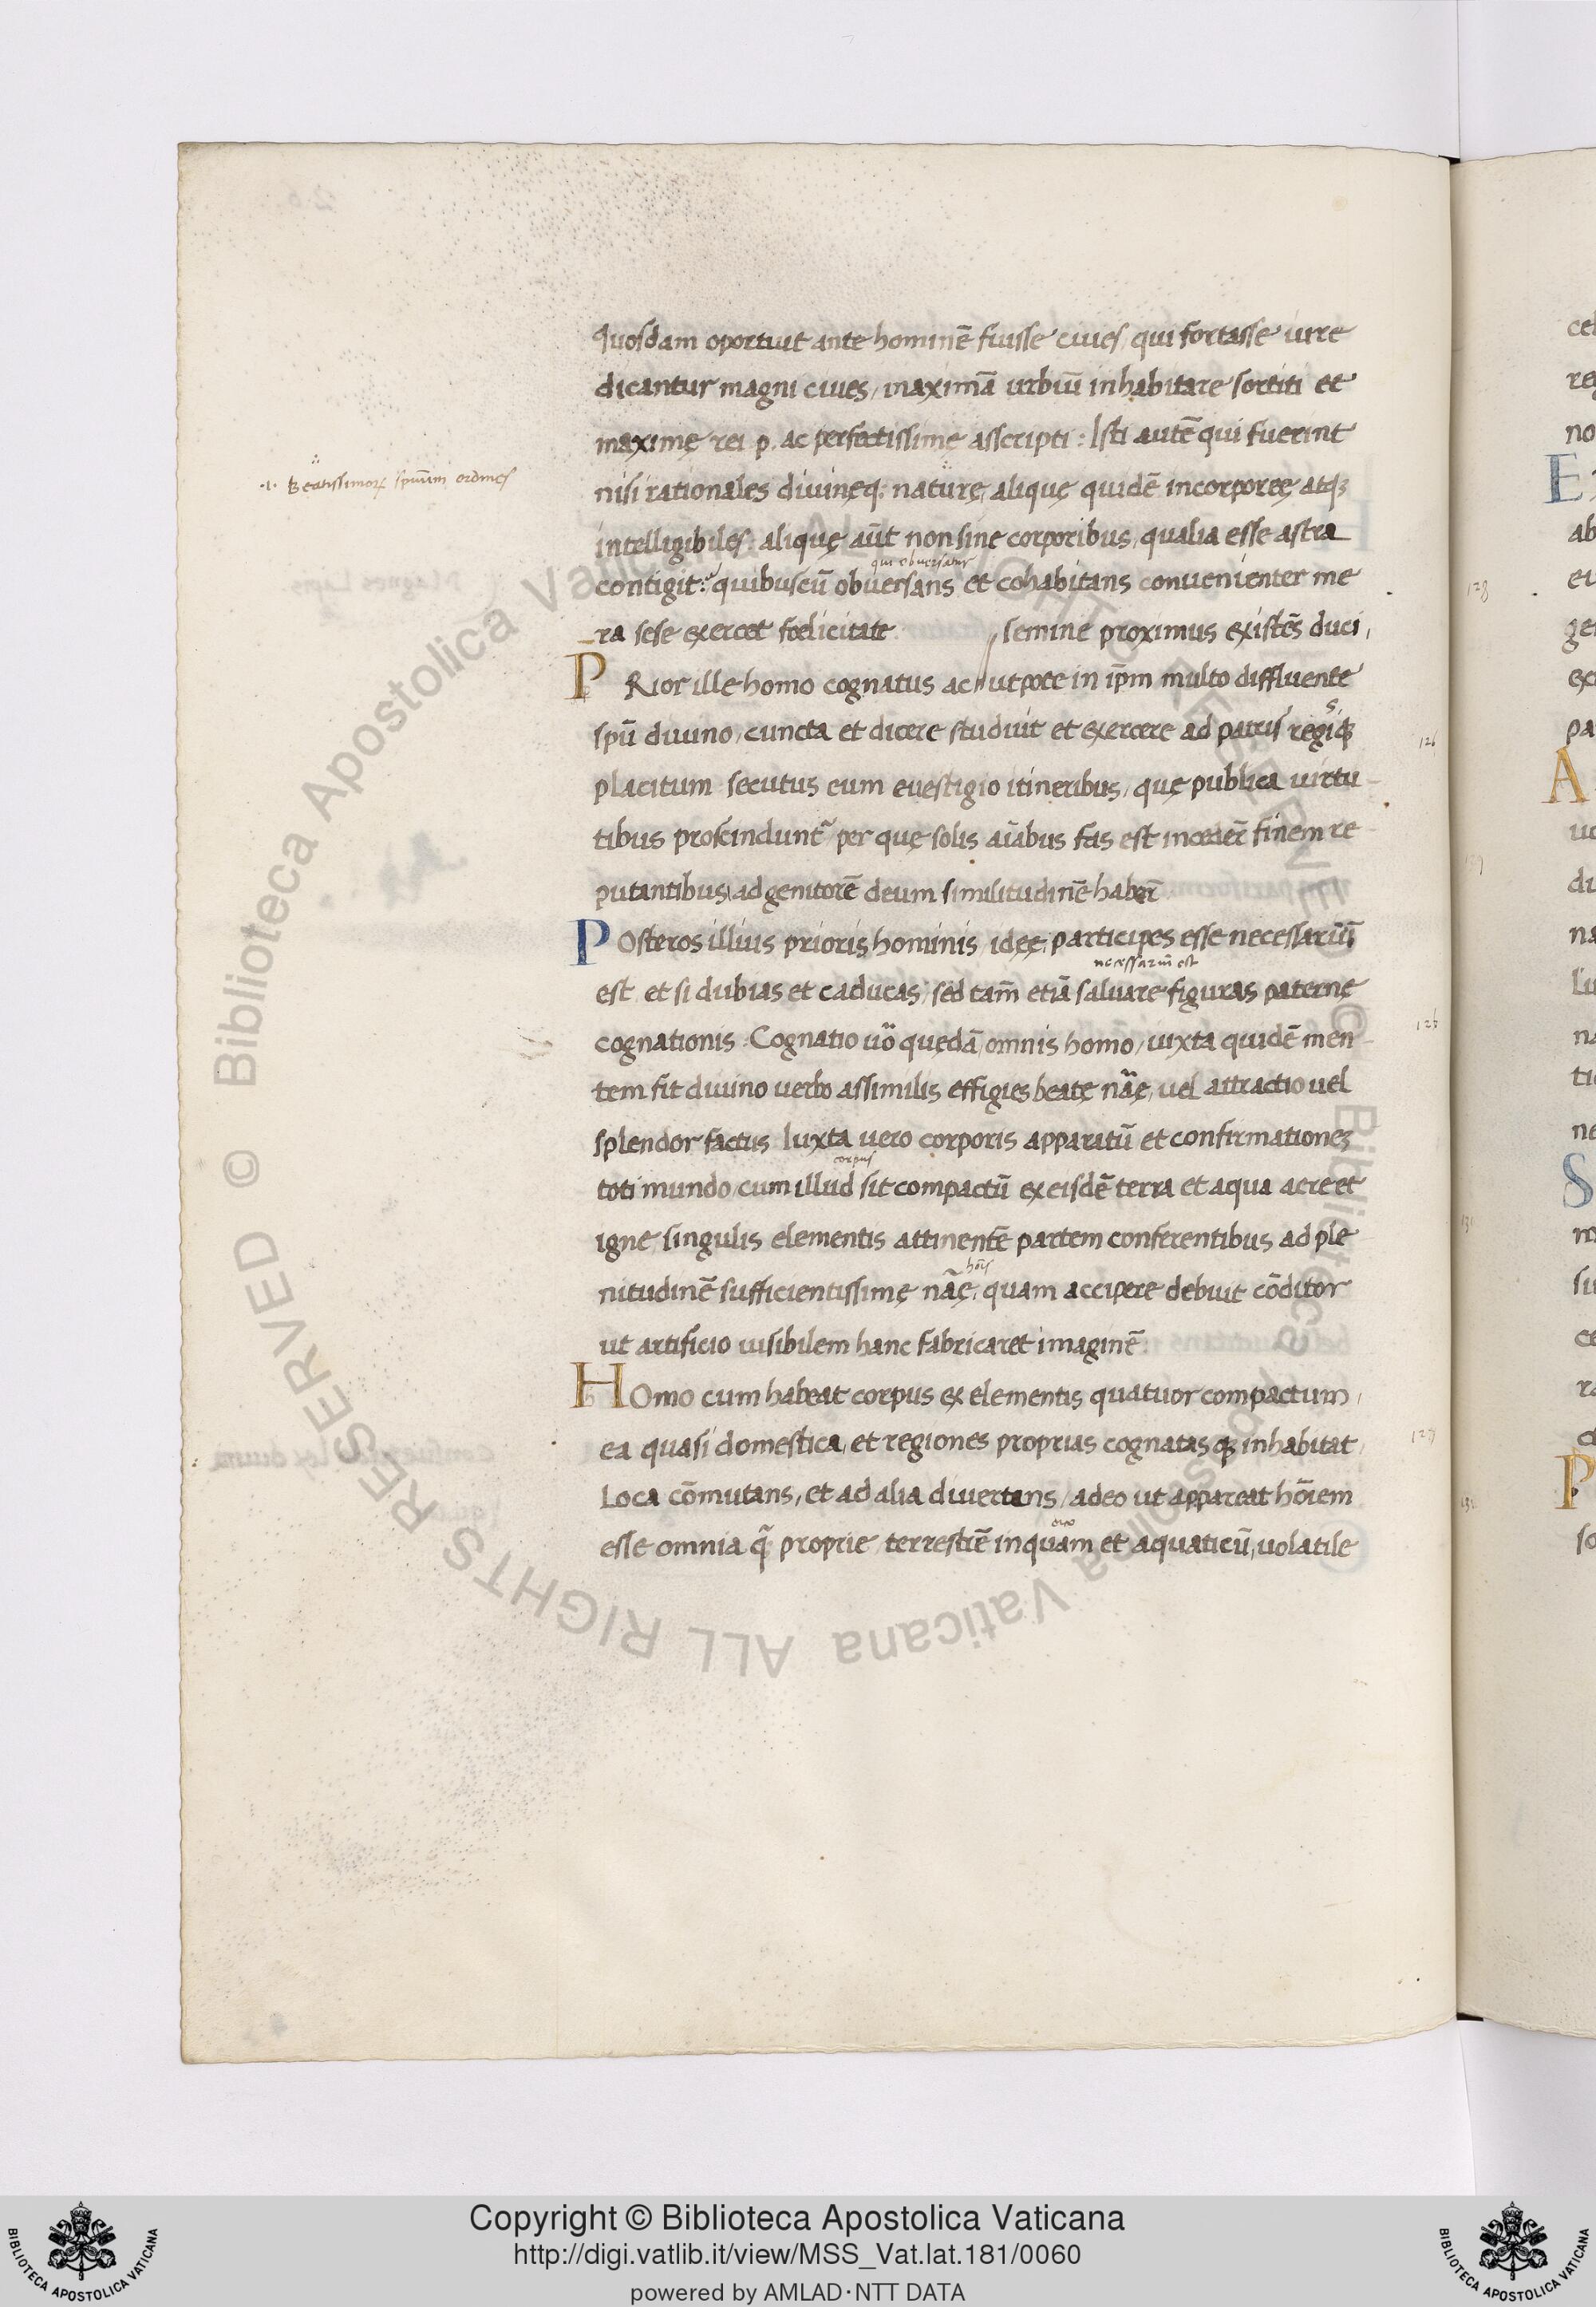 quosdam oportuit ante hominē fuisse ciues, qui fortasse iure
dicantur magni ciues, maximā urbiū inhabitare sortiti et
maximę rei p. ac perfectissimę asscripti: Isti autē qui fuerint
.i. Beatissimorꝝ spūum ordines
nisi rationales diuinęq; naturę, aliquę quidē incorporeę atq;
intelligibiles: aliquę aūt non sine corporibus, qualia esse astra
qui obuersatur
contigit: quibuscū obuersans et cohabitans conuenienter me
ra sese exercet foelicitate
semine proximus existēs duci,
PRior ille homo cognatus ac utpote in ip̄m multo diffluente
spū diuino, cuncta et dicere studuit et exercere ad patris regisq;
placitum secutus eum euestigio itineribus, quę publica uirtu-
126
tibus proscindunt̃ per quę solis aīabus fas est incedeř finem re-
putantibus, ad genitorē deum similitudinē habeř
POsteros illius prioris hominis, idęę participes esse necessariū
necessariū est
est et si dubias et caducas, sed tam̄ etiā saluare figuras paternę
cognationis: Cognatio uō quędā omnis homo, iuxta quidē men-
126
tem fit diuino uerbo assimilis effigies beatę nāę, uel attractio uel
splendor factus Iuxta uero corporis apparatū et confirmationes
corpus
toti mundo, cum illud sit compactū ex eisdē terra et aqua aere et
igne, singulis elementis attinentē partem conferentibus ad ple
hoīs
nitudinē sufficientissimę nāę, quam accipere debuit cōditor
ut artificio uisibilem hanc fabricaret imaginē.
HOmo cum habeat corpus ex elementis quatuor compactum,
ea quasi domestica, et regiones proprias cognatasq; inhabitat,
127
Loca cōmutans, et ad alia diuertens, adeo ut appareat hōiem
esse omnia q̃ proprie terrestrē inquam et aquaticū, uolatile
128
Copyright © Biblioteca Apostolica Vaticana
http://digi.vatlib.it/view/MSS_Vat.lat.181/0060
powered by AMLAD·NTT DATA
BIBLIOTECA APOSTOLICA VATICANA
BIBLIOTECA APOSTOLICA VATICANA
© Biblioteca Apostolica Vaticana ALL RIGHTS RESERVED
© Biblioteca Apostolica Vaticana ALL RIGHTS RESERVED